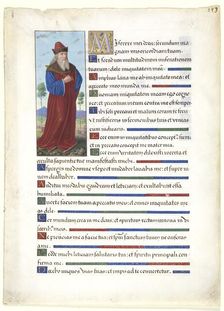 Miserere mei deus: secundum mag
nam misericordiam tuam.
Et secundum multitudinem miserationem
tuarum: dele iniquitatem meam.
Amplius lava me ab iniquitate mea: et
a peccato meo munda me.
Quoniam iniquitatem meam ego cognos
co: et peccatum meum contra me est semper.
Tibi soli peccavi et malum coram te
feci: ut iustificeris in sermonibus tuis et vincas
cum iudicaris
Ecce enim in iniquitatibus conceptus
sum: et in peccatis concepit me mater mea.
Ecce enim veritatem dilexisti: incerta et
occulta sapientie tue manifestasti michi.
Asperges me domine ysopo et mundabor: lavabis me et super ni
vem dealbabor.
Auditui meo dabis gaudium et leticiam: et exultabunt ossa
humiliata.
Averte faciem tuam a peccatis meis: et omnes iniquitates me
as dele.
Cor mundum crea in me deus: et spiritum rectum innova in vis
ceribus meis.
Ne proicias me a facie tua: et spiritum sanctum tuum ne auferas a me.
Redde michi leticiam salutaris tui: et spiritu principali con
firma me.
Docebo iniquos vias tuas: et impii ad te convertentur.